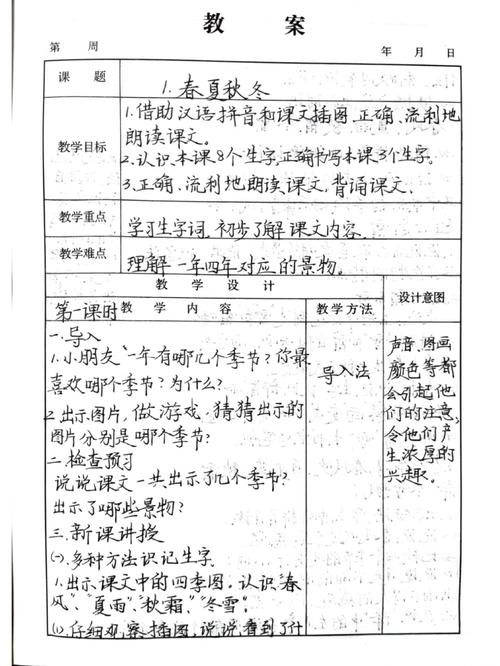 教 案
第 周 年 月 日
课 题 1.春夏秋冬
教学目标 1.借助汉语拼音和课文插图、正确、流利地
朗读课文。
2.认识本课8个生字,正确书写本课3个生字.
3.正确、流利地朗读课文,背诵课文.
教学重点 学习生字词,初步了解课文内容.
教学难点 理解一年四年对应的景物。
教 学 设 计
设计意图
第一课时 教 学 内 容 教学方法
一.导入
1.小朋友一年有哪几个季节?你最
喜欢哪个季节?为什么?
导入法
2.出示图片,做游戏,猜猜出示的
图片分别是哪个季节?
声音、图画
颜色等都
会引起他
们的注意,
令他们产
生浓厚的
兴趣。
二.检查预习
说说课文一共出示了几个季节?
出示了哪些景物?
三.新课讲授
㈠.多种方法识记生字.
1.出示课文中的四季图。认识"春
风"、"夏雨"、"秋霜"、"冬雪".
⑴仔细观察插图,说说看到了什